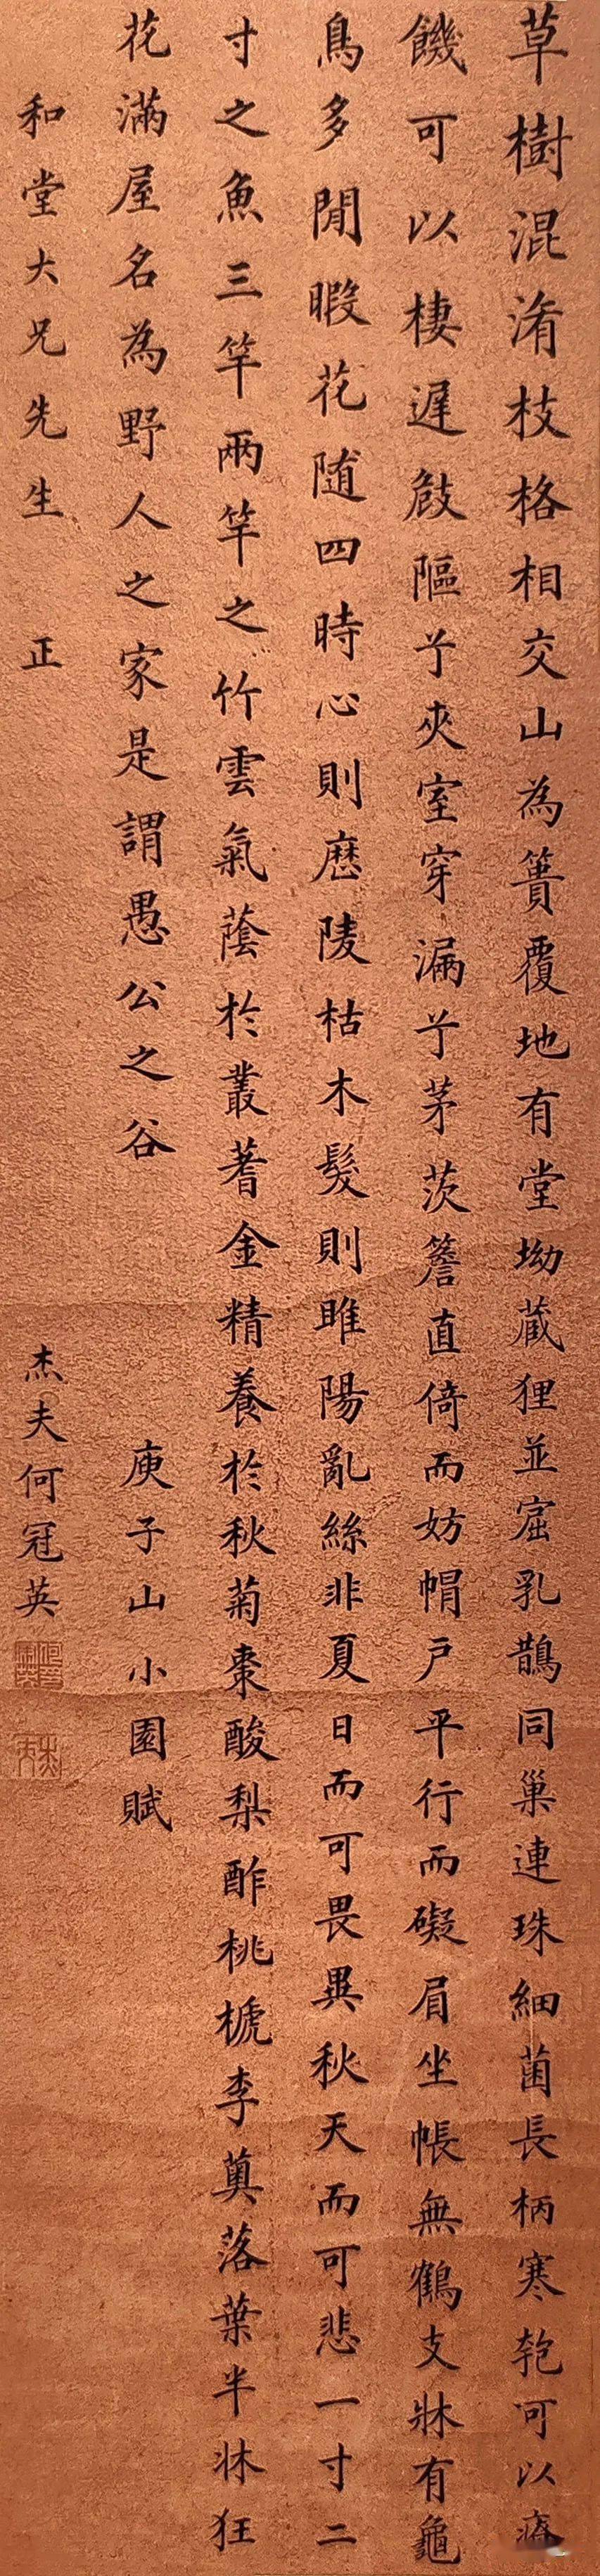 草樹混淆枝格相交山為簣覆地有堂坳蔵狸並窟乳鵲同巢連珠細菌長柄寒匏可以療
饑可以棲遲㪣䧢兮夾室穿漏兮茅茨簷直倚而妨帽戶平行而礙眉坐帳無鶴支牀有龜
鳥多閒暇花随四時心則歴陵枯木髮則睢陽亂絲非夏日而可畏異秋天而可悲一寸二
寸之魚三竿兩竿之竹雲氣蔭於叢蓍金精養於秋菊棗酸梨酢桃榹李薁落葉半牀狂
花滿屋名為野人之家是謂愚公之谷 庾子山小園賦
和堂大兄先生 正 杰夫何冠英